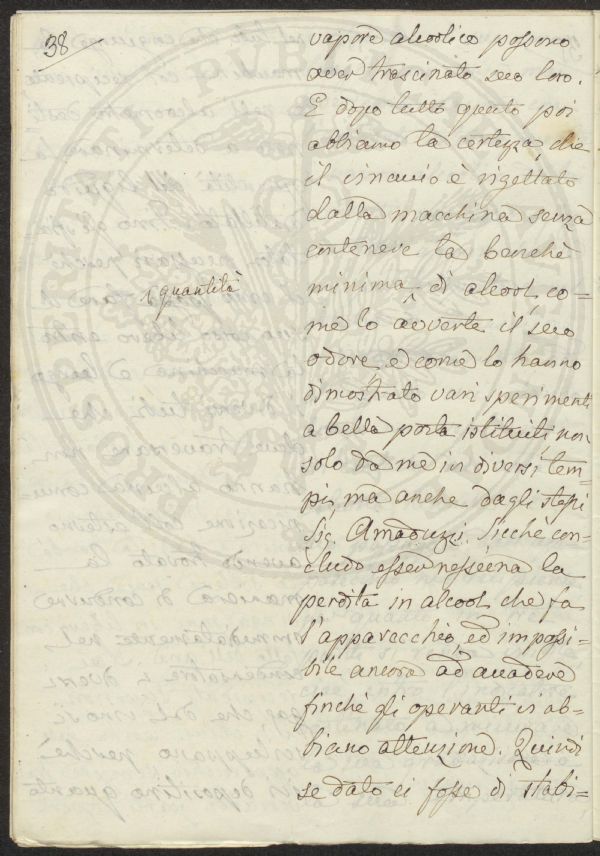 38
vapore alcoolico possono
aver trascinato seco loro.
E dopo tutto questo poi
abbiamo la certezza, che
il vinavio è rigettato
dalla macchina senza
contenere la benchè
minima ^ di alcool, co=
^ quantità
me lo avverte il suo
odore, e come lo hanno
dimostrato vari sperimenti
a bella posta istituiti non
solo da me in diversi tem=
pi, ma anche dagli stessi
Sig. Amaduzzi. Sicchè con=
cludo esser nessuna la
perdita in alcool che fa
l'apparecchio, ed impossi=
bile ancora ad accadere
finchè gli operanti vi ab=
biano attenzione. Quindi
se dato ci fosse di stabi=